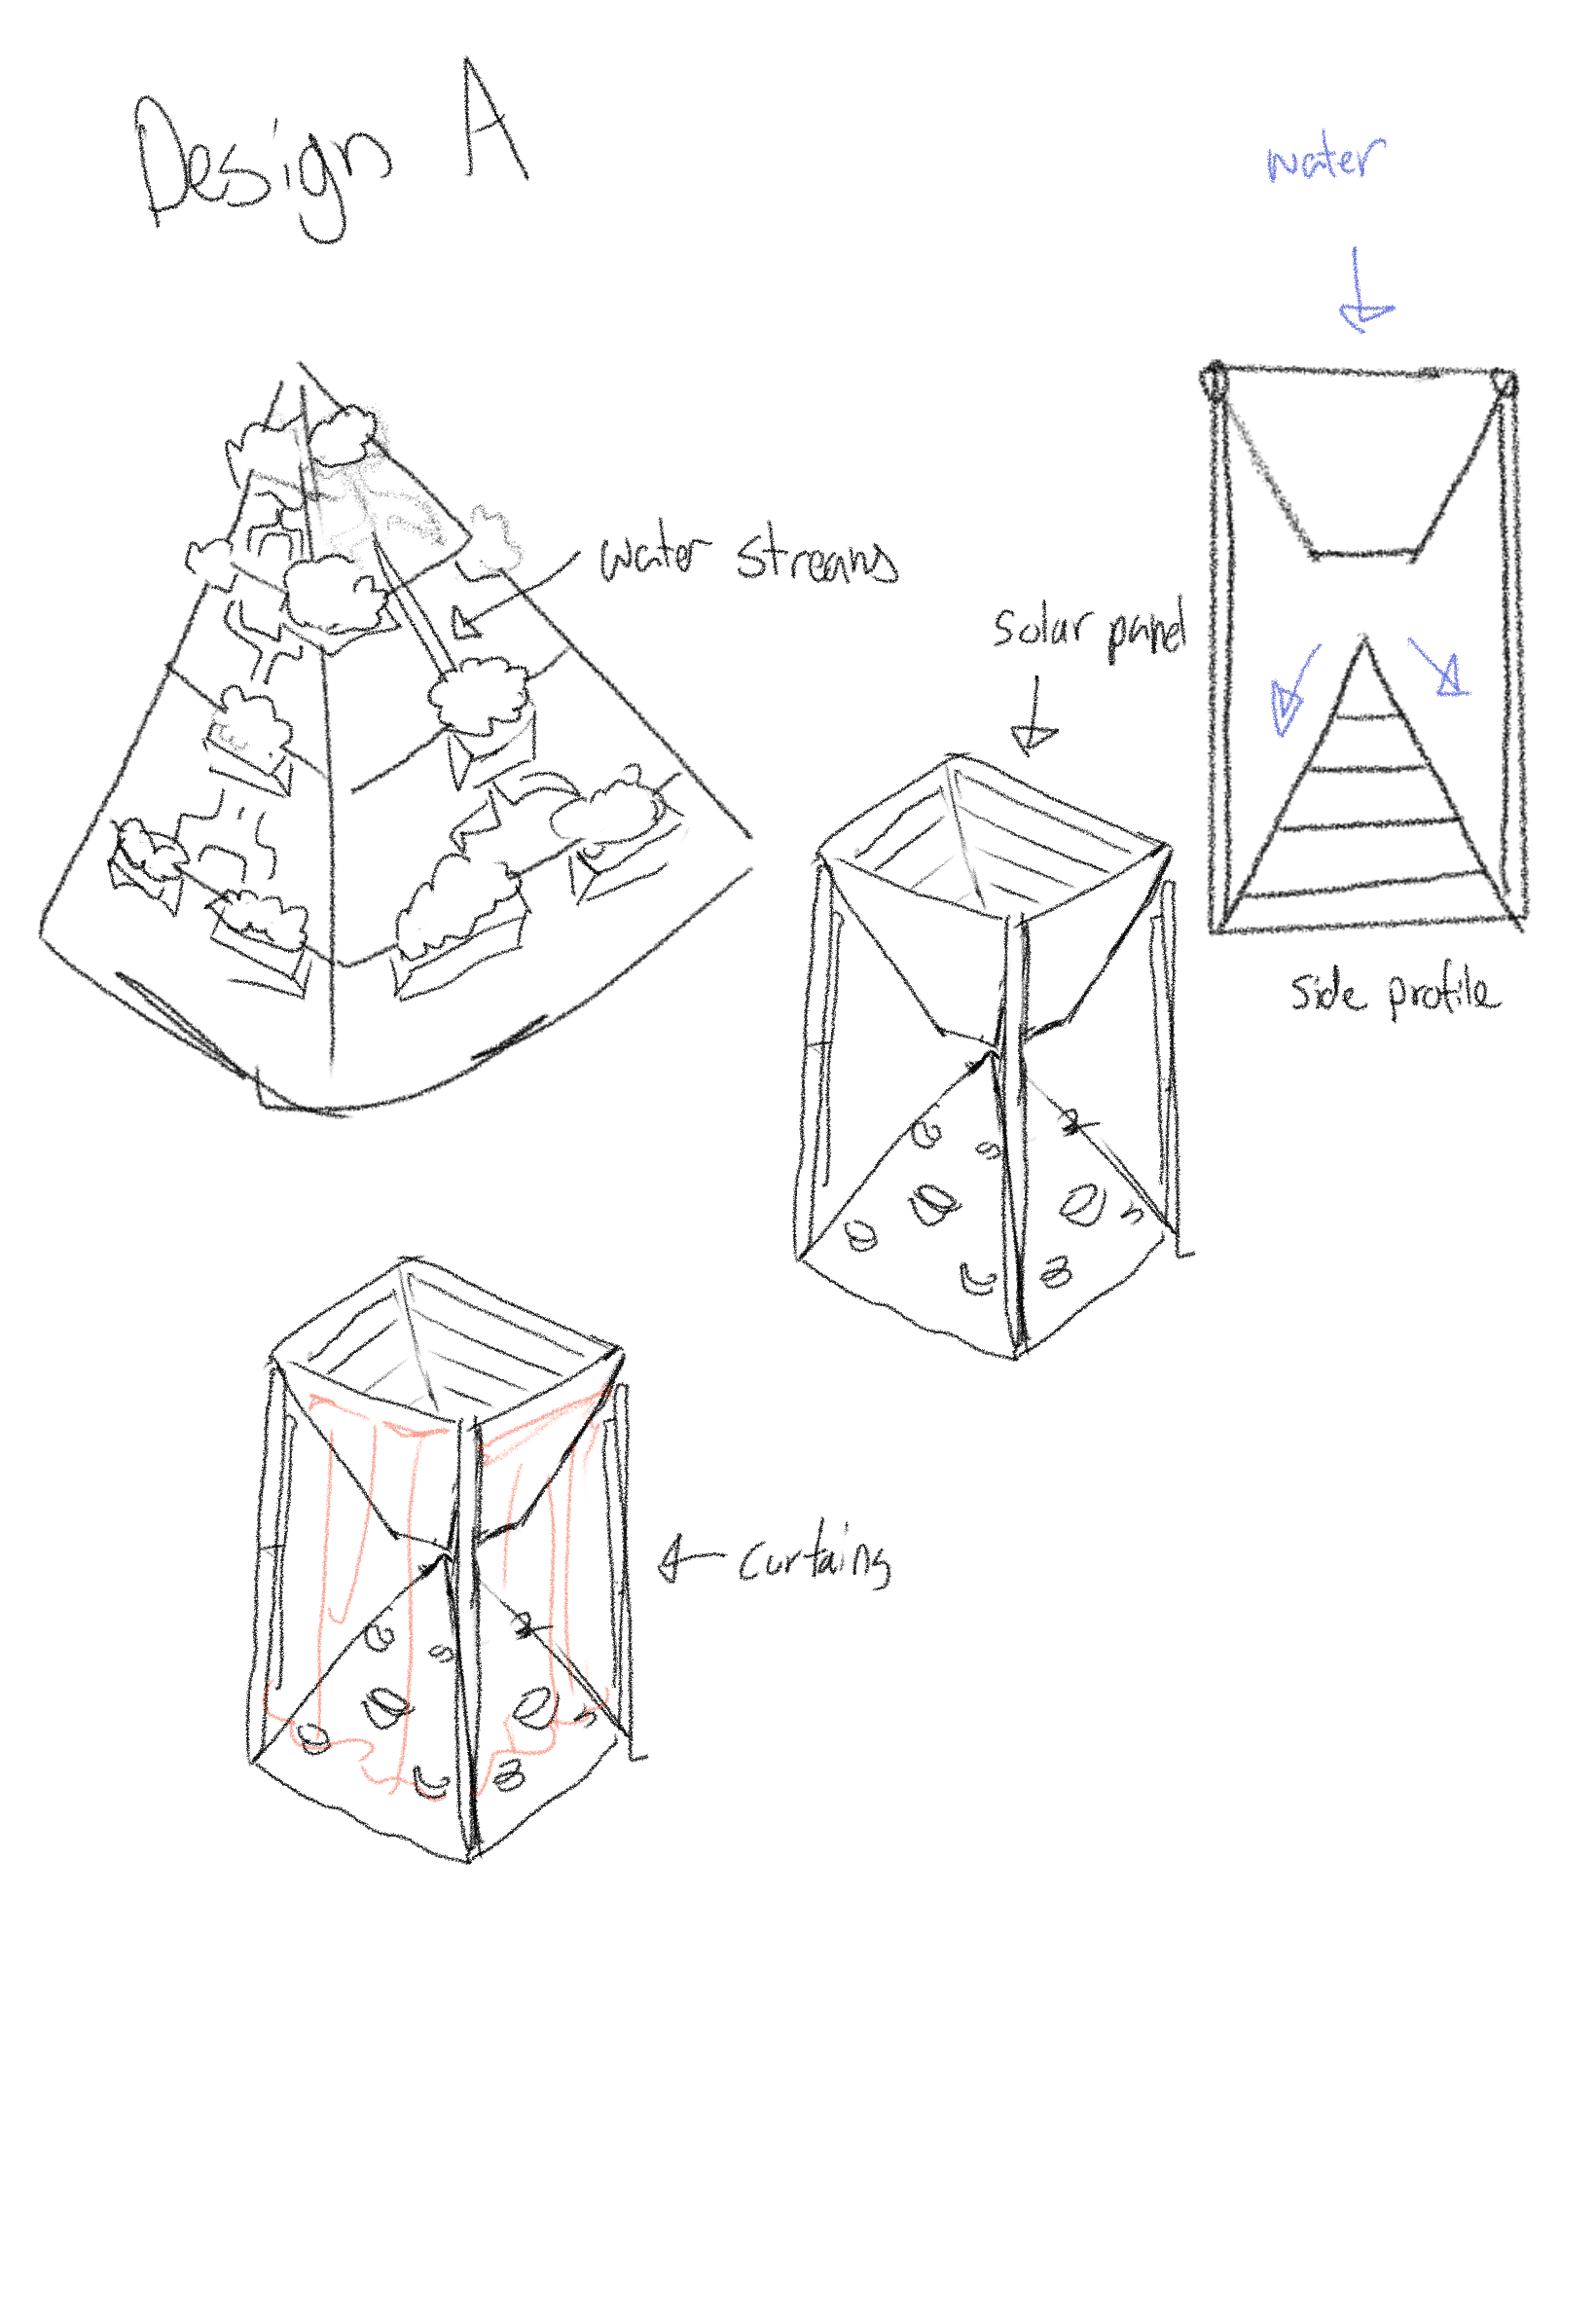 Design A
water
water streans
solar panel
side profile
curtains